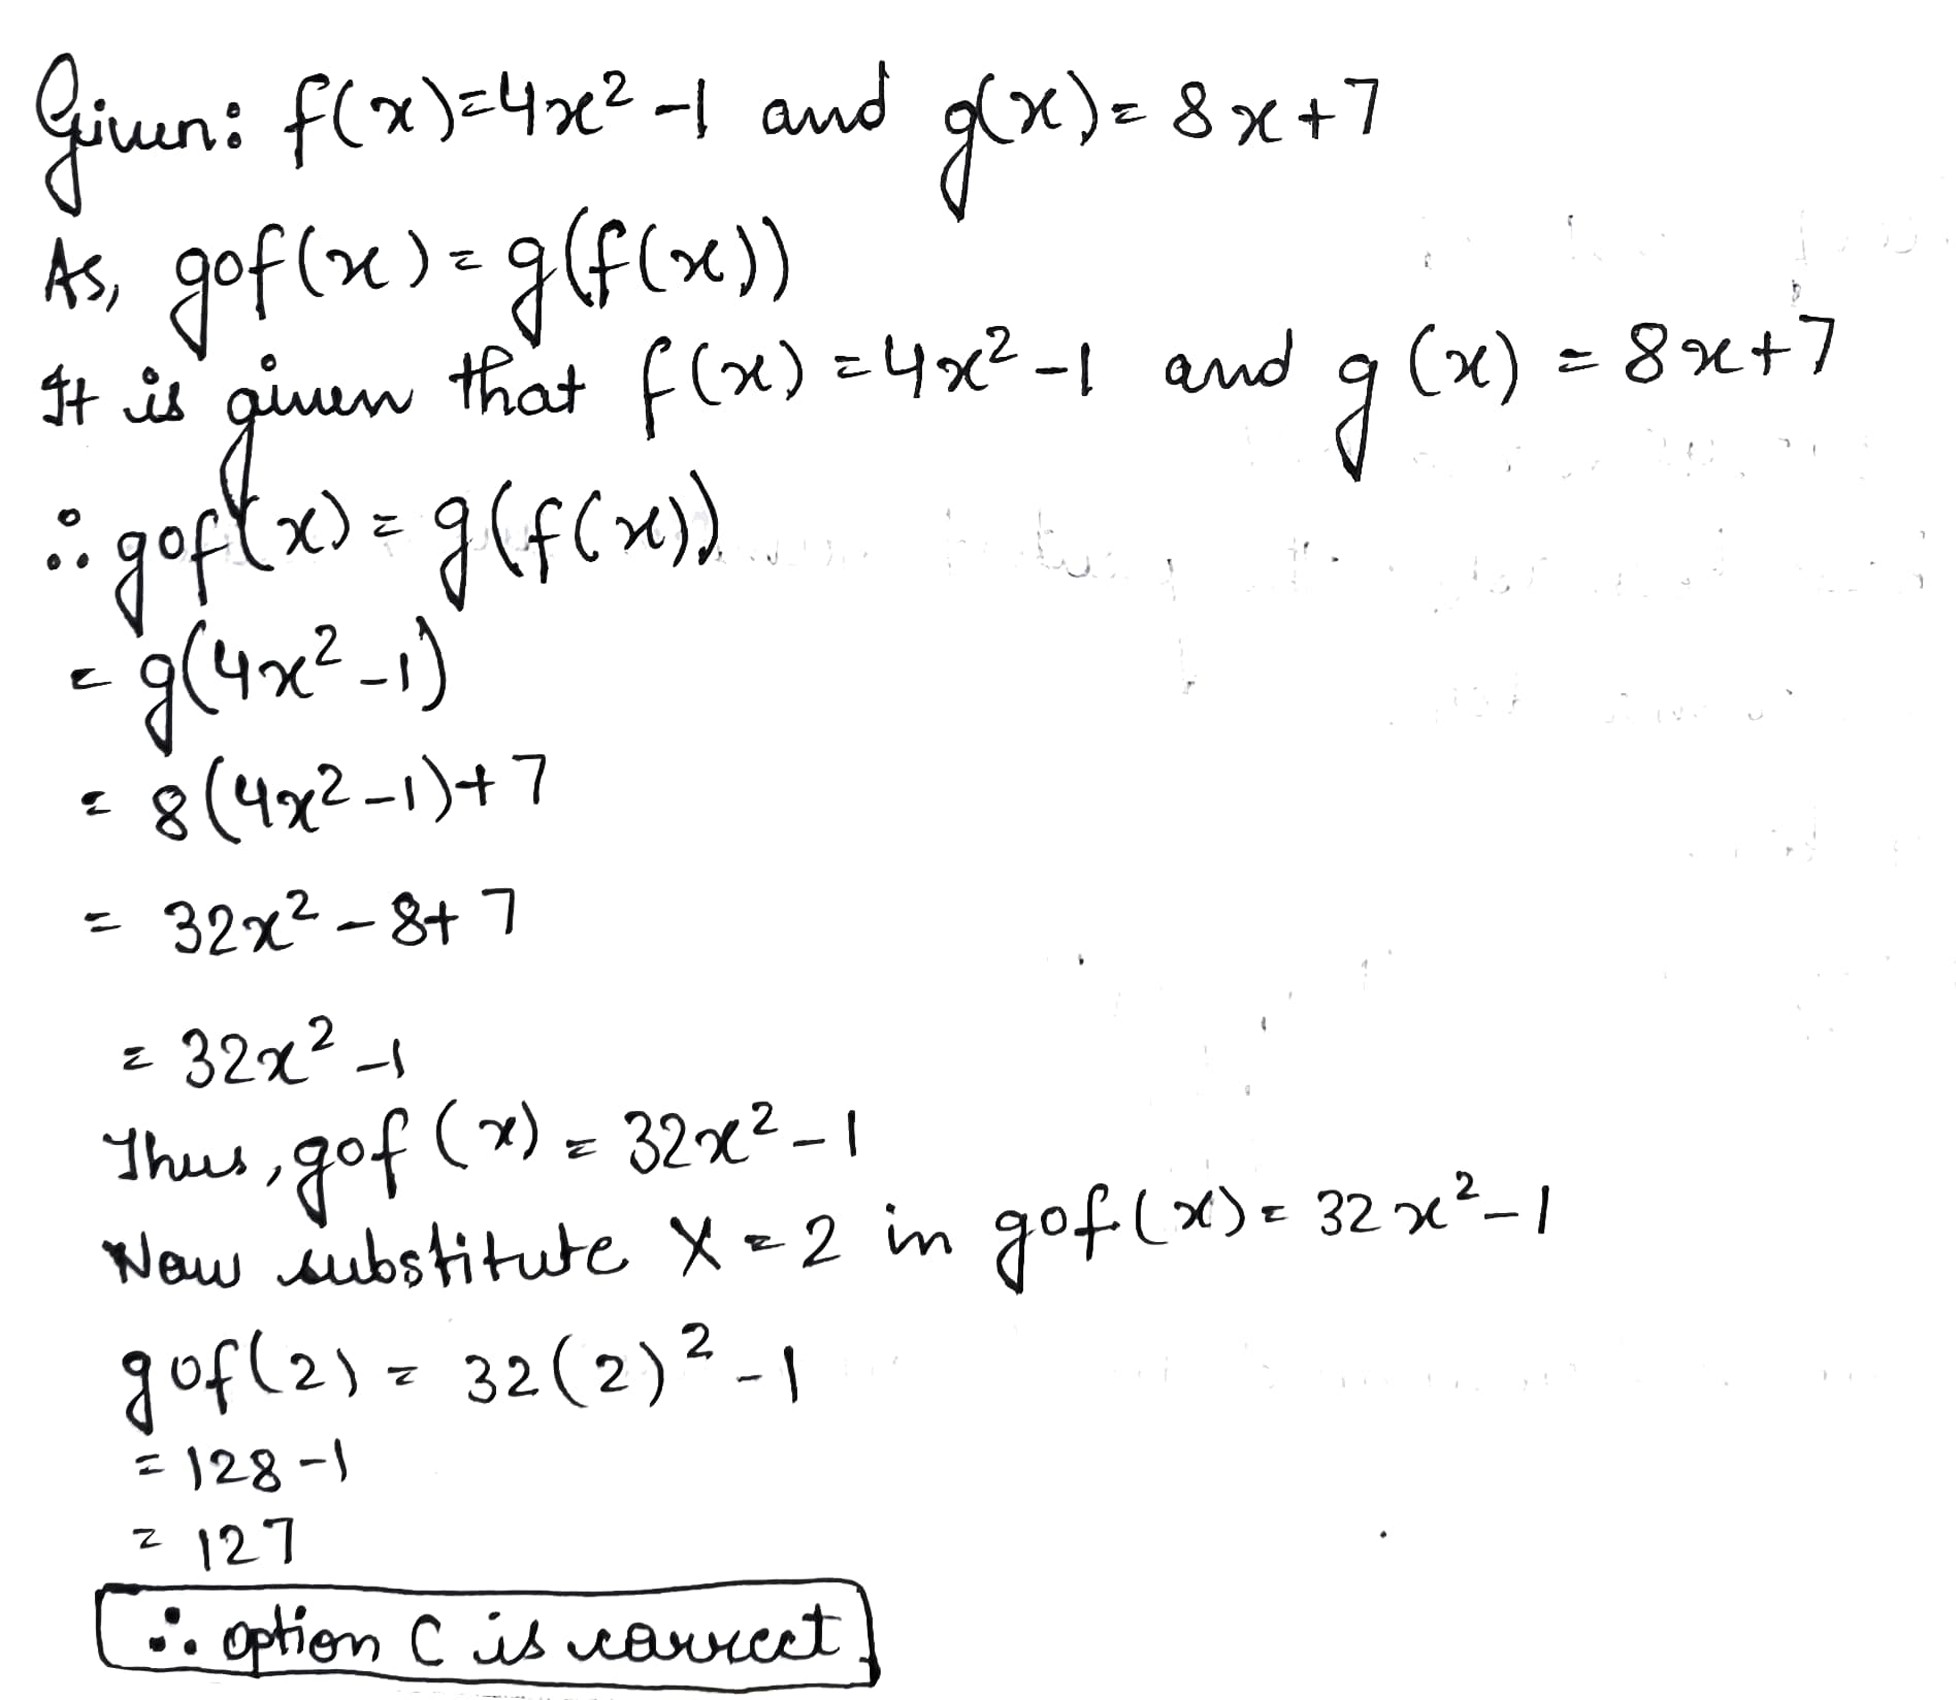 Given: f(x)=4x²-1 and g(x)=8x+7
As, gof(x)=g(f(x))
It is given that f(x)=4x²-1 and g(x)=8x+7
∴ gof(x)=g(f(x))
=g(4x²-1)
=8(4x²-1)+7
=32x²-8+7
=32x²-1
Thus, gof(x)=32x²-1
Now substitute X=2 in gof(x)=32x²-1
gof(2)=32(2)²-1
=128-1
=127
∴ option C is correct